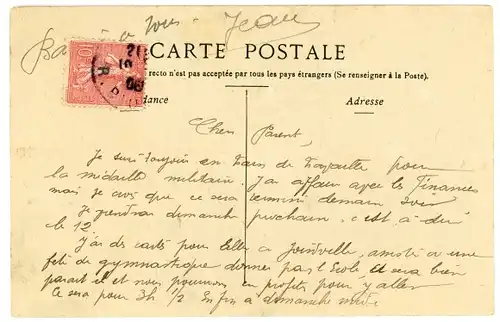 à tous Jean
CARTE POSTALE
recto n'est pas acceptée par tous les pays étrangers (Se renseigner à la Poste).
dance Adresse
Cher Parent,
Je suis toujours en train de travailler pour
la médaille militaire. J'ai affaire avec les Finances
mais je crois que ce sera terminé demain soir
Je viendrai dimanche prochain, c'est à dire
le 12.
J'ai des cartes pour aller a Joinville, a une
fete de gymnastique donnée par l'Ecole et sera bien
parait il et nous pourrons en profiter pour y aller
Ce sera pour 3h 1/2 Enfin a dimanche